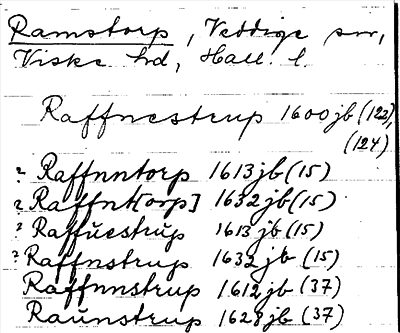 Ramstorp, Veddige sn,
Viske hd, Hall. l.
Raffnestrup 1600 jb (122),
(124)
? Raffnntorp 1613 jb (15)
? Raffnt[orp] 1632 jb (15)
? Raffuestrup 1613 jb (15)
? Raffnstrup 1632 jb (15)
Raffnnstrup 1612 jb (37)
Raunstrup 1628 jb (37)